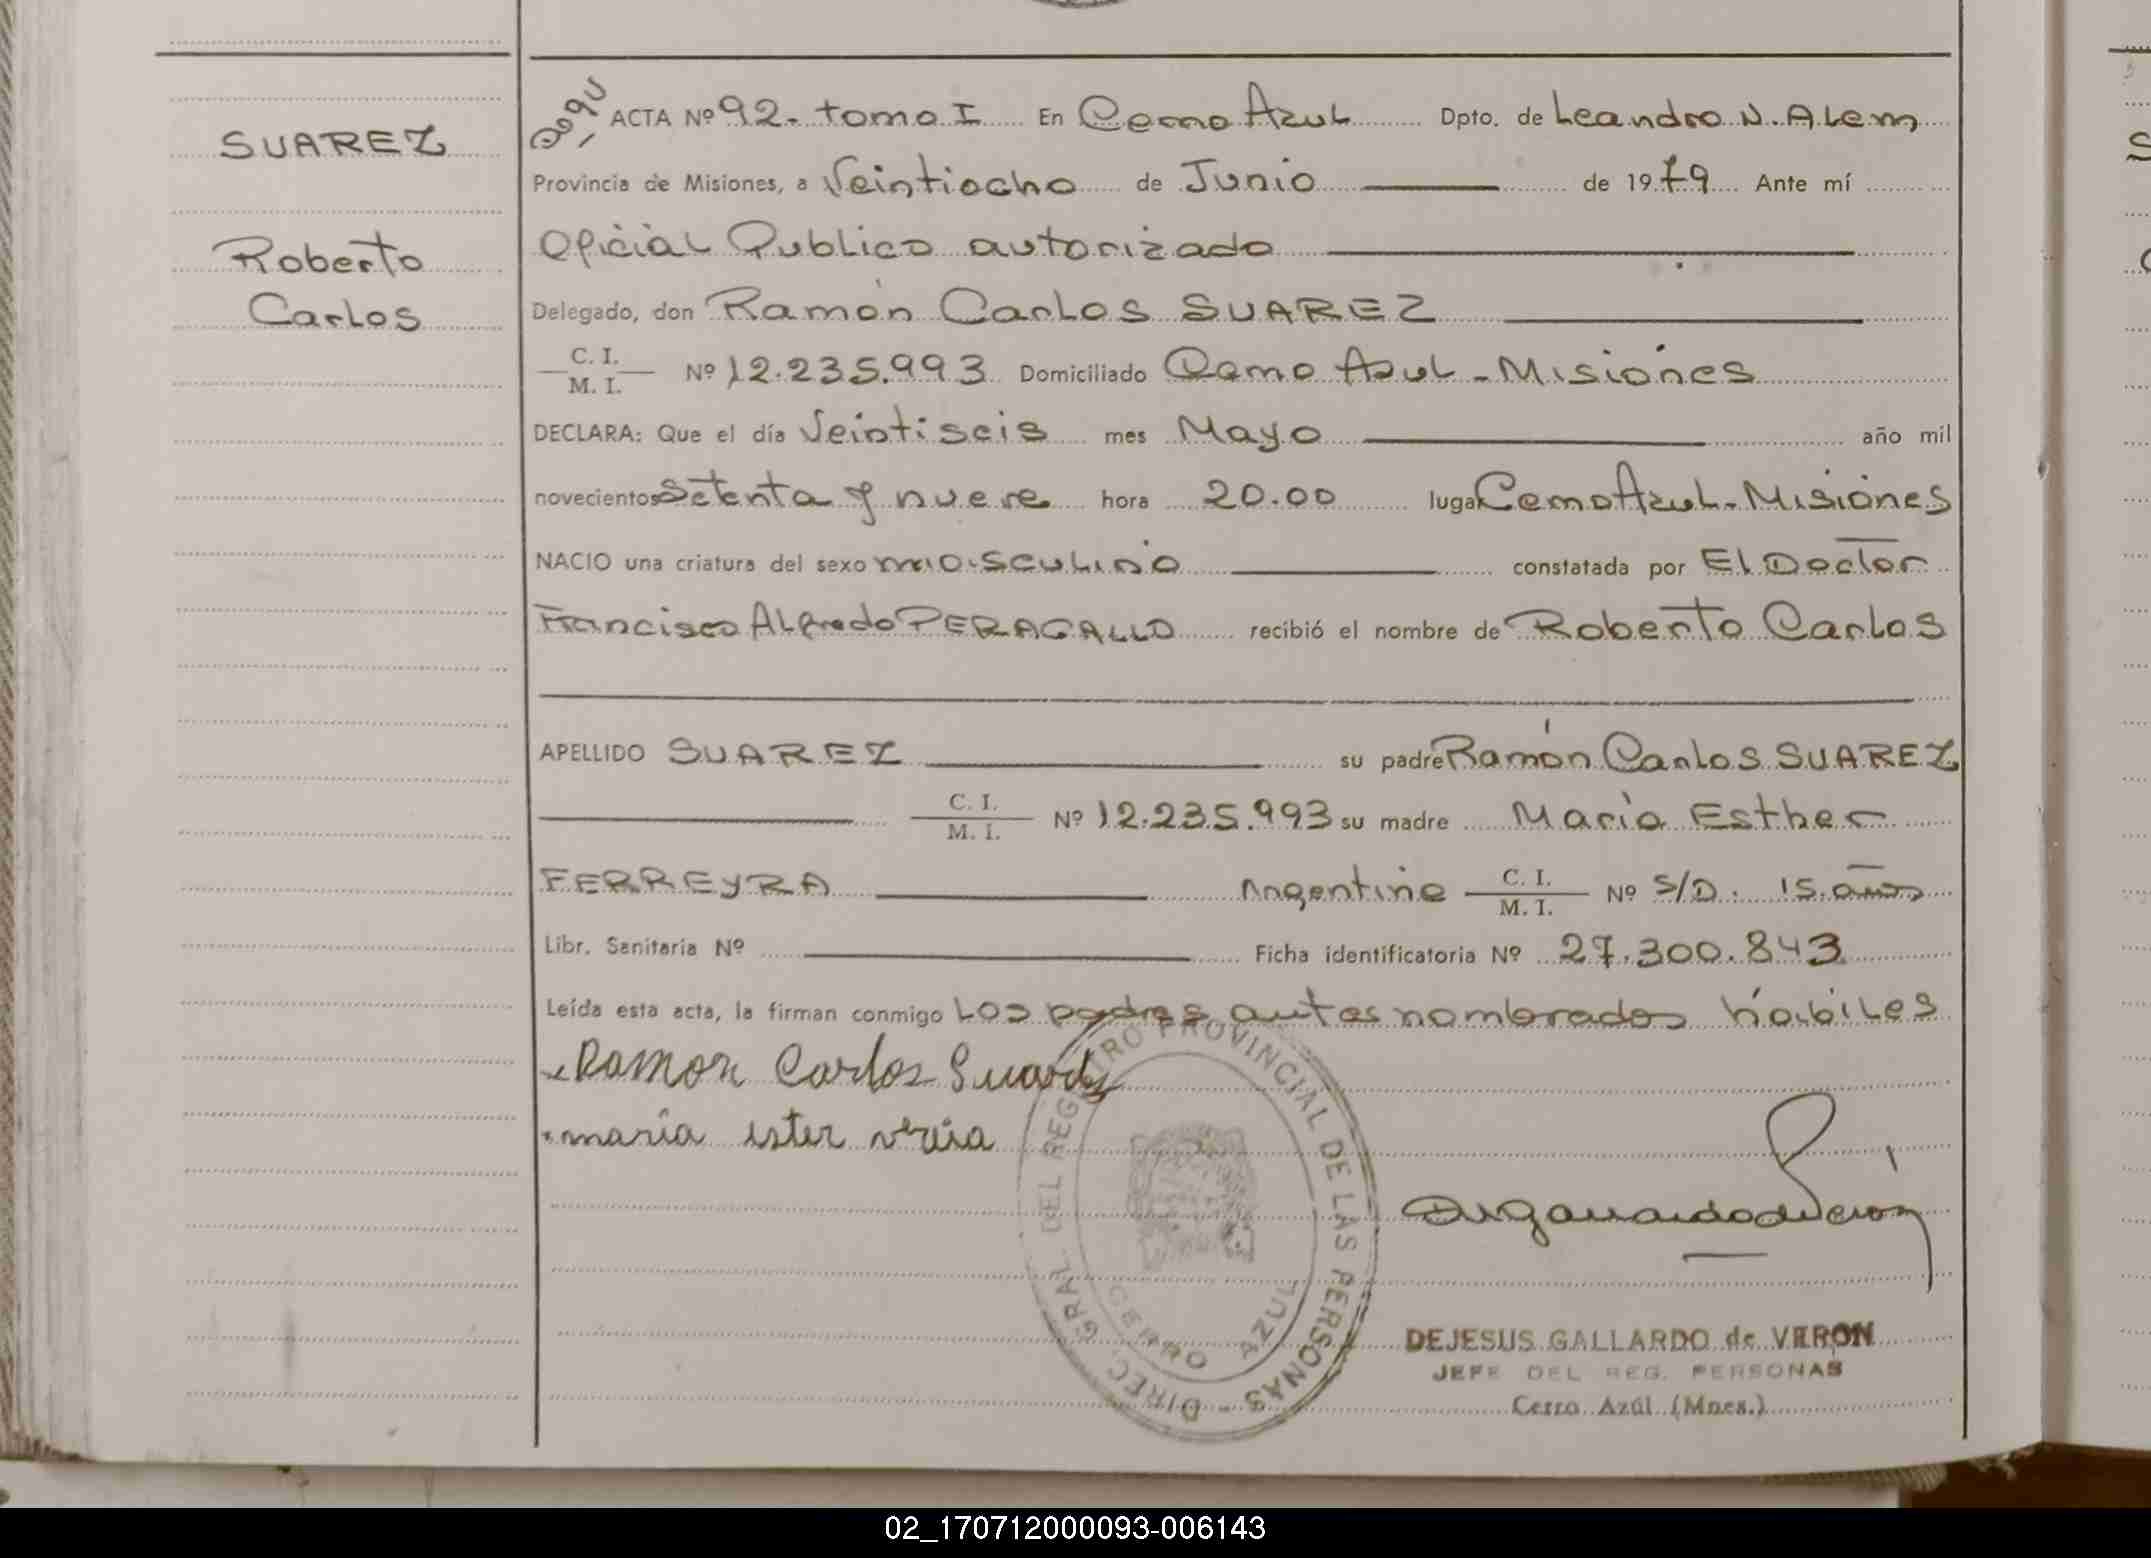 SUAREZ
Roberto
Carlos
ACTA Nº 92. tomo I En Cerro Azul Dpto. de Leandro N. Alem
Provincia de Misiones, a Veintiocho de Junio de 1979 Ante mí
Oficial Publico autorizado
Delegado, don Ramón Carlos SUAREZ
C. I.
M. I. Nº 12.235.993 Domiciliado Cerro Azul - Misiones
DECLARA: Que el día Veintiseis mes Mayo año mil
novecientos Setenta y nueve hora 20.00 lugar Cerro Azul - Misiones
NACIO una criatura del sexo masculino constatada por El Doctor
Francisco Alfredo PERAGALLO recibió el nombre de Roberto Carlos
APELLIDO SUAREZ su padre Ramón Carlos SUAREZ
C. I.
M. I. Nº 12.235.993 su madre María Esther
FERREYRA Argentina C. I.
M. I. Nº S/D. 15 años
Libr. Sanitaria Nº Ficha identificatoria Nº 27.300.843
Leída esta acta, la firman conmigo Los padres antes nombrados hábiles
Ramon Carlos Suarez
maria ister
DIREC. GRAL. DEL REGISTRO PROVINCIAL DE LAS PERSONAS -
CERRO AZUL
DEJESUS GALLARDO de VERON
JEFE DEL REG. PERSONAS
Cerro Azúl (Mnes.)
02_170712000093-006143